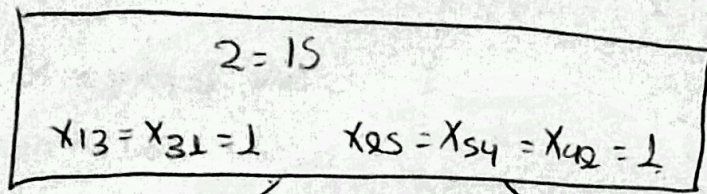 2 = 15
x13 = x31 = 1 x25 = x54 = x42 = 1